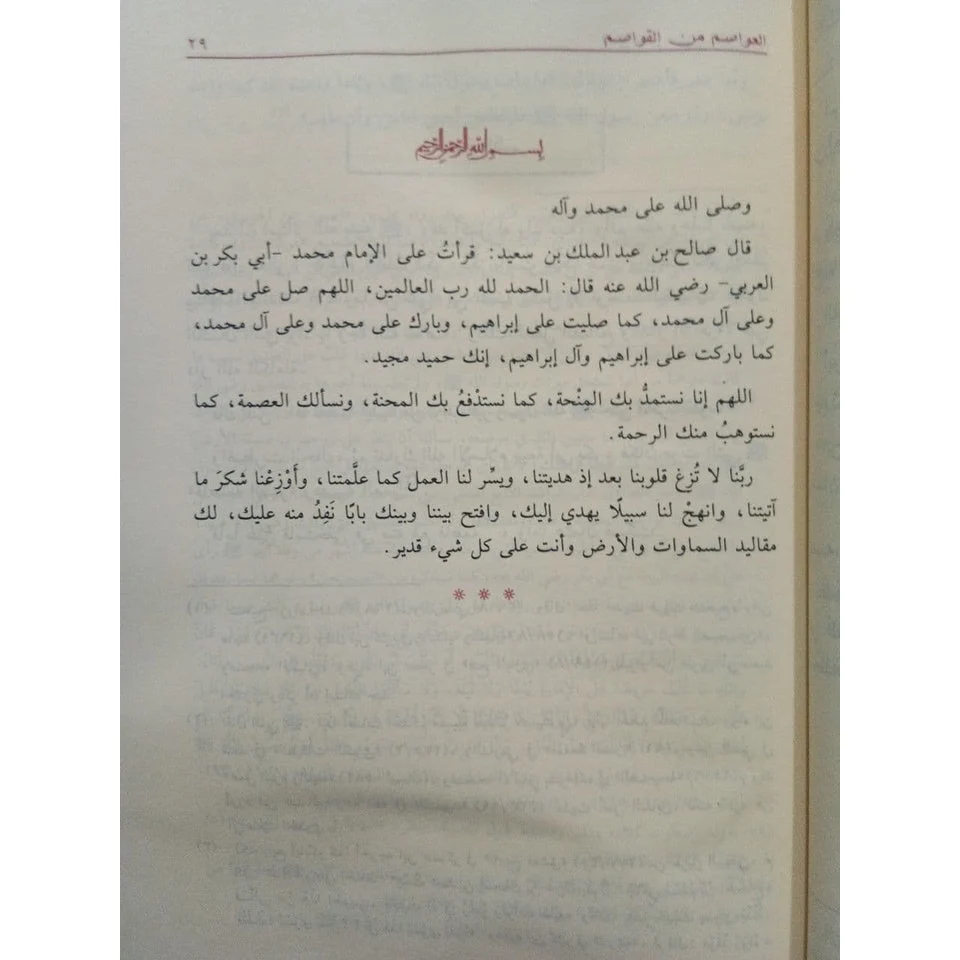 العواصم من القواصم ٢٩
بسم الله الرحمن الرحيم
وصلى الله على محمد وآله
قال صالح بن عبد الملك بن سعيد: قرأتُ على الإمام محمد -أبي بكر بن
العربي- رضي الله عنه قال: الحمد لله رب العالمين، اللهم صل على محمد
وعلى آل محمد، كما صليت على إبراهيم، وبارك على محمد وعلى آل محمد،
كما باركت على إبراهيم وآل إبراهيم، إنك حميد مجيد.
اللهم إنا نستمدُّ بك المِنْحة، كما نستدْفعُ بك المحنة، ونسألك العصمة، كما
نستوهبُ منك الرحمة.
ربَّنا لا تُزِغ قلوبنا بعد إذ هديتنا، ويسِّر لنا العمل كما علَّمتنا، وأَوْزِعْنا شكرَ ما
آتيتنا، وانهجْ لنا سبيلًا يهدي إليك، وافتح بيننا وبينك بابًا نَفِدُ منه عليك، لك
مقاليد السماوات والأرض وأنت على كل شيء قدير.